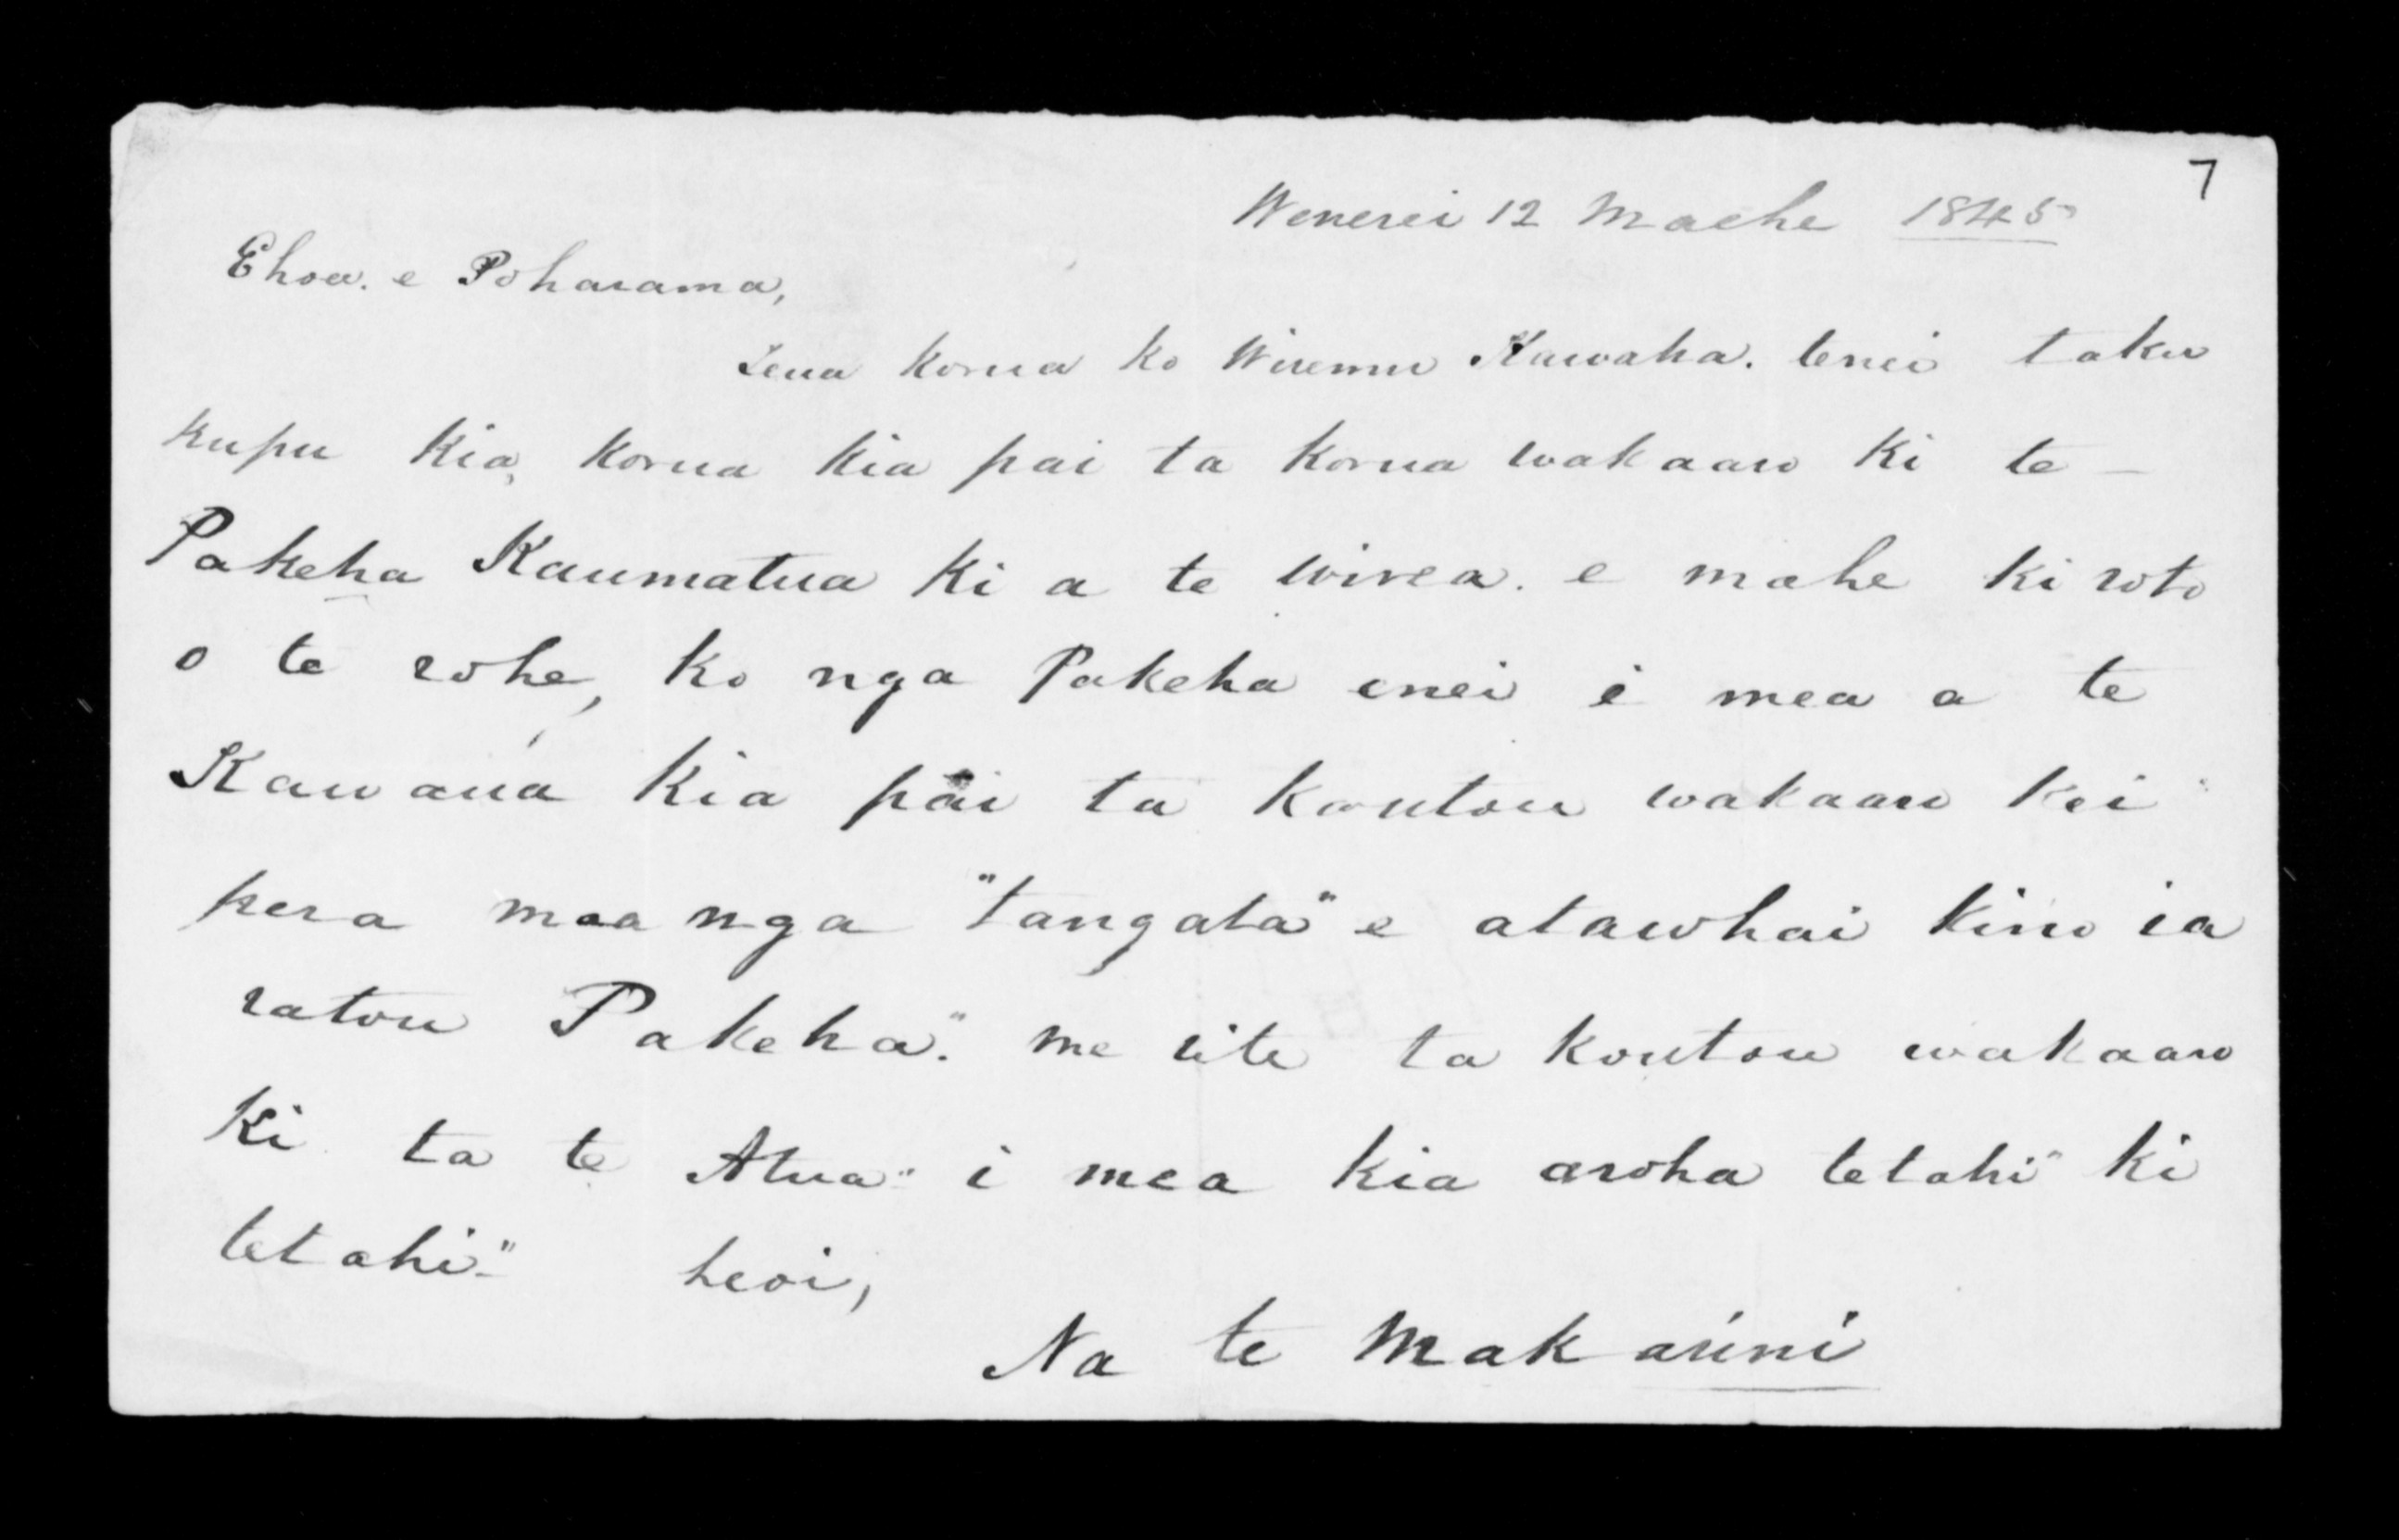 7
Wenerei 12 Maehe 1845
Ehoa. e Poharama,
Tena korua ko Wiremu Kawaha. tenei taku
kupu kia, korua kia pai ta korua wakaaro ki te -
Pakeha Kaumatua ki a te e mahe ki roto
o te rohe, ko nga Pakeha enei i mea a te
Kawana kia pai ta koutou wakaaro kei
pera maa nga "tangata" e atawhai kino ia
ratou Pakeha." me rite ta koutou wakaaro
ki ta te Atua" i mea kia aroha tetahi" ki
tetahi" heoi,
Na te Makarini